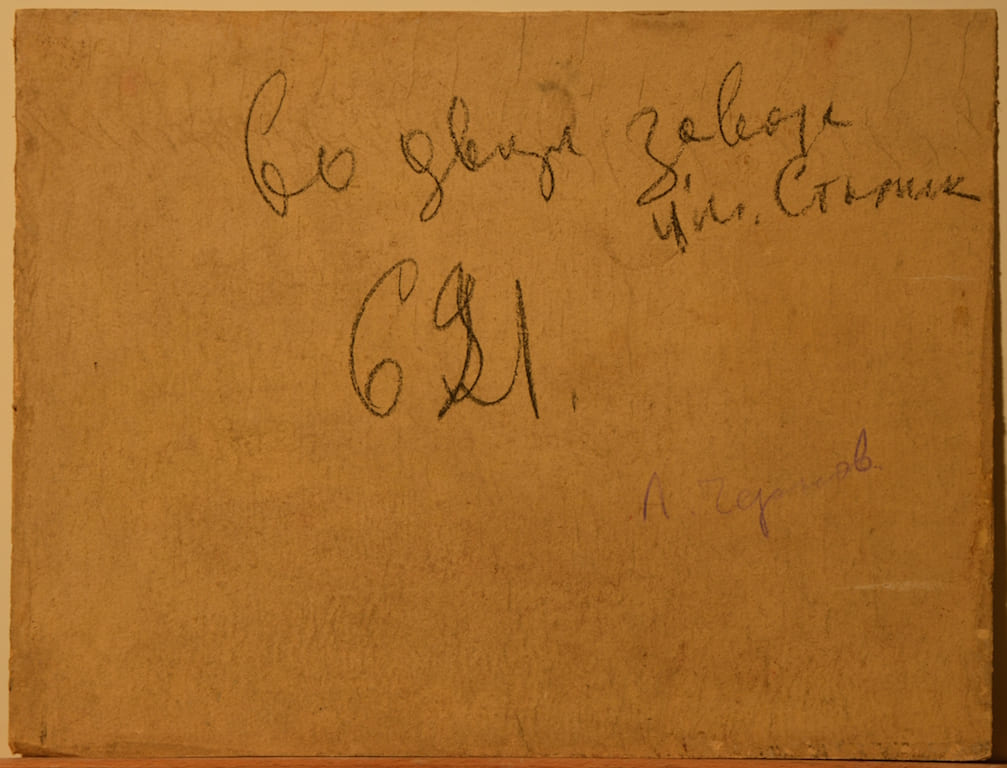 Во дворе завода
им.
621.
А. Чернов